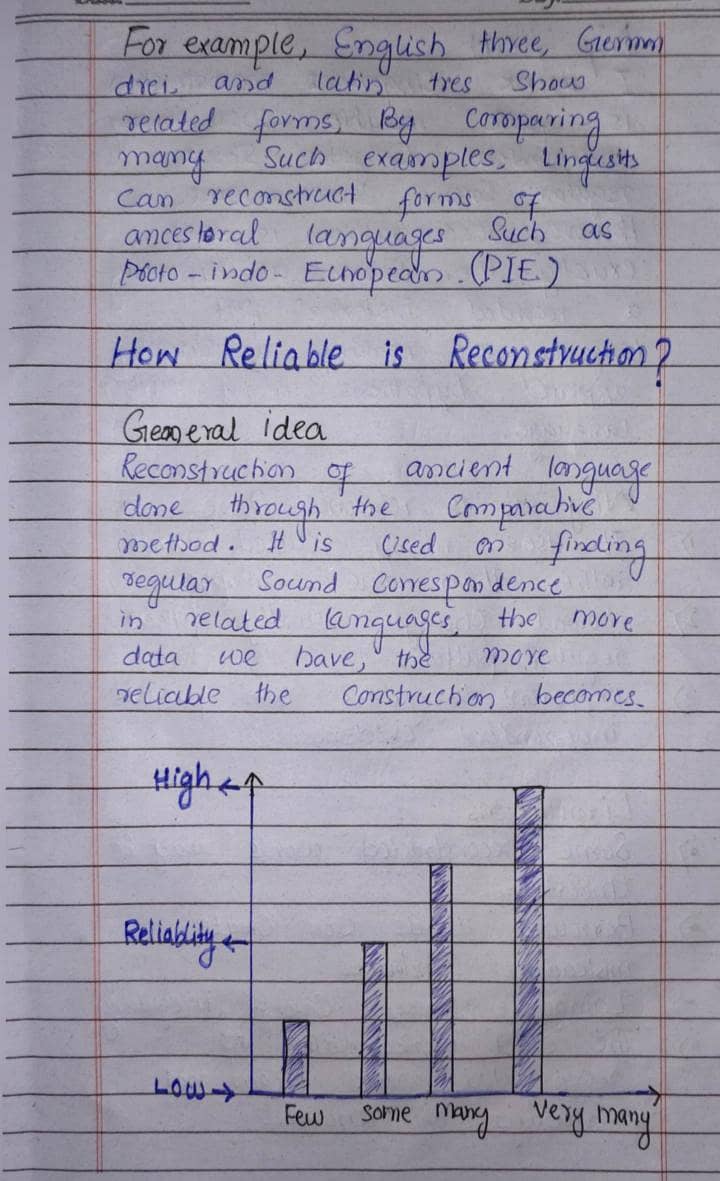 For example, English three, German
drei, and latin tres Show
related forms, By Comparing
many Such examples, Lingusits
Can reconstruct forms of
ancestoral languages Such as
Proto-indo-European. (PIE)
How Reliable is Reconstruction?
General idea
Reconstruction of ancient language
done through the Comparative
method. It is Used on finding
regular Sound Correspondence
in related languages, the more
data we have, the more
reliable the Construction becomes.
High
Reliablity
Low
Few some many very many